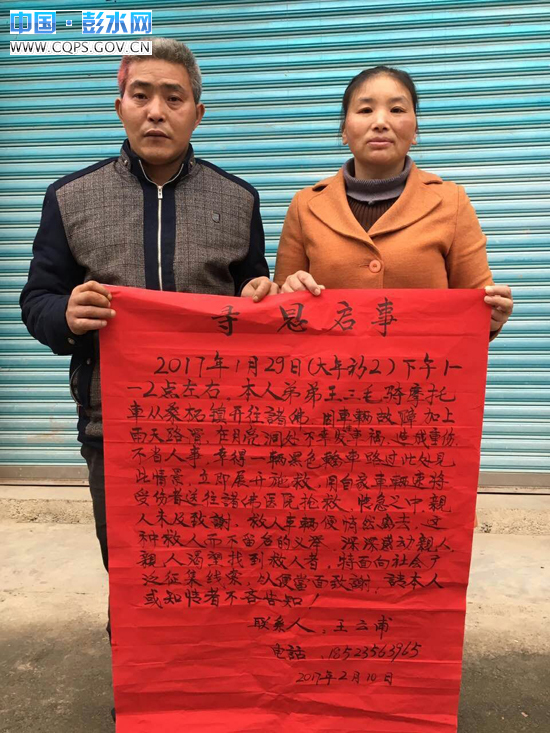 中国·彭水网
WWW.CQPS.GOV.CN
寻恩启事
2017年1月29日(大年初2)下午1-
-2点左右,本人弟弟王三毛骑摩托
车从桑柘镇开往諸佛,因車辆故障加上
雨天路滑,在月花洞处不幸发車禍,造成重伤
不省人事,幸得一辆黑色轎車路过此处见
此情景,立即展开施救,用自家車辆速将
受伤者送往諸佛医院抢救,情急之中親
人未及致謝,救人車辆便悄然离去,这
种救人而不留名的义举,深深感动親人,
親人渴望找到救人者,特面向社会广
泛征集线索,以便當面致謝,請本人
或知情者不吝告知!
联系人:王云甫
电話:18523563965
2017年2月10日